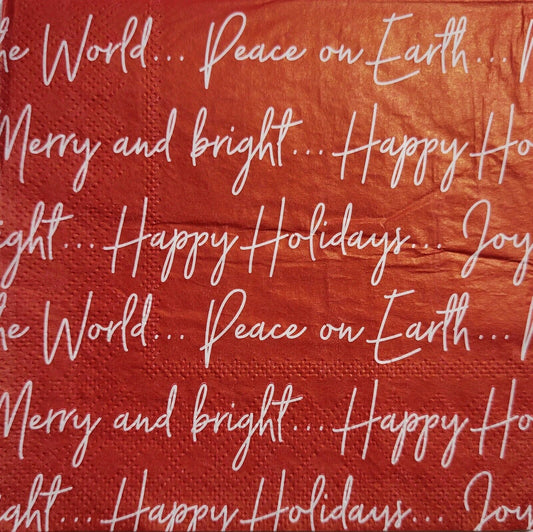 he World... Peace on Earth...
Merry and bright... Happy Ho
ight... Happy Holidays... Joy
he World... Peace on Earth...
Merry and bright... Happy Ho
ight... Happy Holidays... Joy